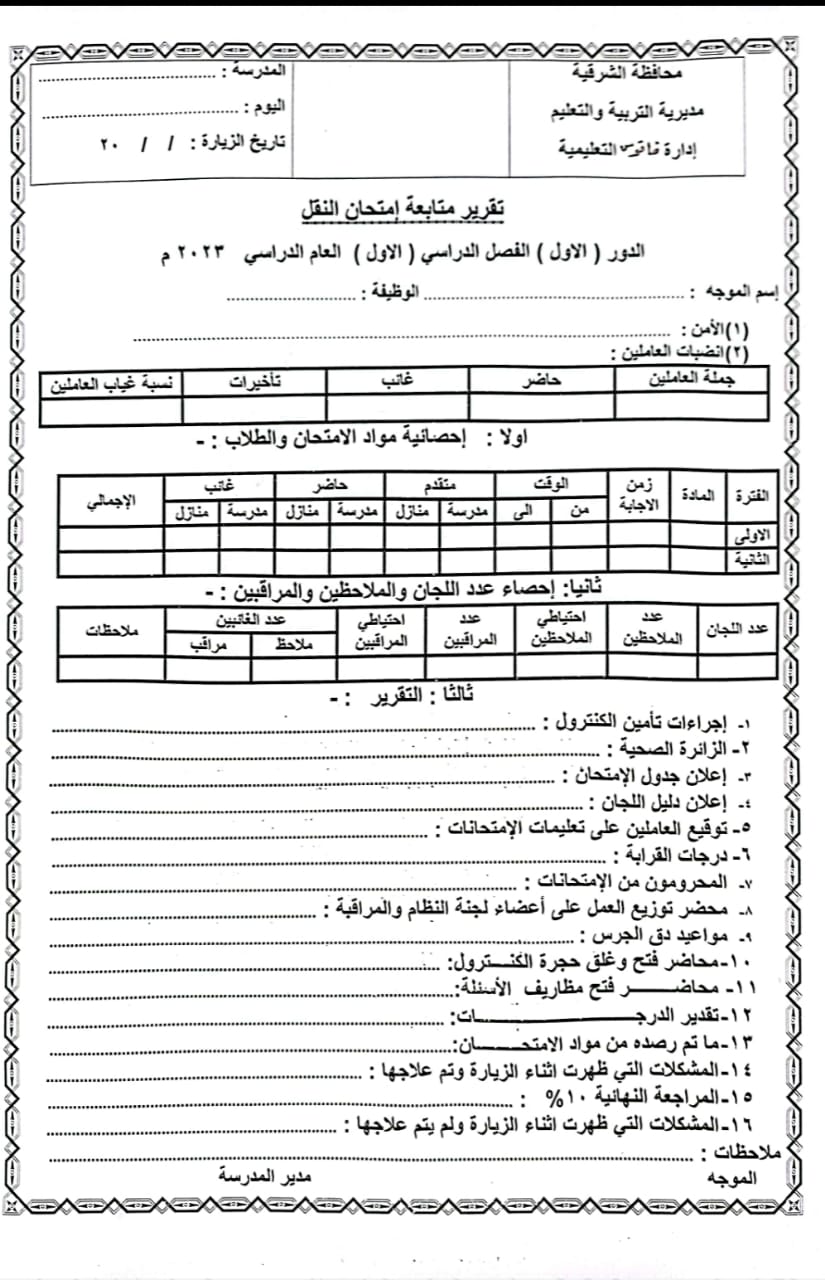 محافظة الشرقية
مديرية التربية والتعليم
إدارة فاقوس التعليمية
المدرسة : ........................
اليوم : ........................
تاريخ الزيارة : / / ٢٠
تقرير متابعة إمتحان النقل
الدور ( الاول ) الفصل الدراسي ( الاول ) العام الدراسي ٢٠٢٣ م
إسم الموجه : ........................ الوظيفة : ........................
(١)الأمن : ........................
(٢)انضبات العاملين :
جملة العاملين حاضر غائب تأخيرات نسبة غياب العاملين
اولا : إحصائية مواد الامتحان والطلاب : -
الفترة المادة زمن الاجابة الوقت متقدم حاضر غائب الإجمالي
من الى مدرسة منازل مدرسة منازل مدرسة منازل
الاولى
الثانية
ثانيا: إحصاء عدد اللجان والملاحظين والمراقبين : -
عدد اللجان عدد الملاحظين احتياطي الملاحظين عدد المراقبين احتياطي المراقبين عدد الغائبين ملاحظات
ملاحظ مراقب
ثالثا : التقرير : -
١- إجراءات تأمين الكنترول : ........................
٢- الزائرة الصحية : ........................
٣- إعلان جدول الإمتحان : ........................
٤- إعلان دليل اللجان : ........................
٥- توقيع العاملين على تعليمات الإمتحانات : ........................
٦- درجات القرابة : ........................
٧- المحرومون من الإمتحانات : ........................
٨- محضر توزيع العمل على أعضاء لجنة النظام والمراقبة : ........................
٩- مواعيد دق الجرس : ........................
١٠-محاضر فتح وغلق حجرة الكنـــترول: ........................
١١- محاضــــــر فتح مظاريف الأسئلة: ........................
١٢-تقدير الدرجـــــــــــــــــــات: ........................
١٣-ما تم رصده من مواد الامتحـــــــان: ........................
١٤-المشكلات التي ظهرت اثناء الزيارة وتم علاجها : ........................
١٥-المراجعة النهائية ١٠% : ........................
١٦-المشكلات التي ظهرت اثناء الزيارة ولم يتم علاجها : ........................
ملاحظات : ........................
الموجه مدير المدرسة